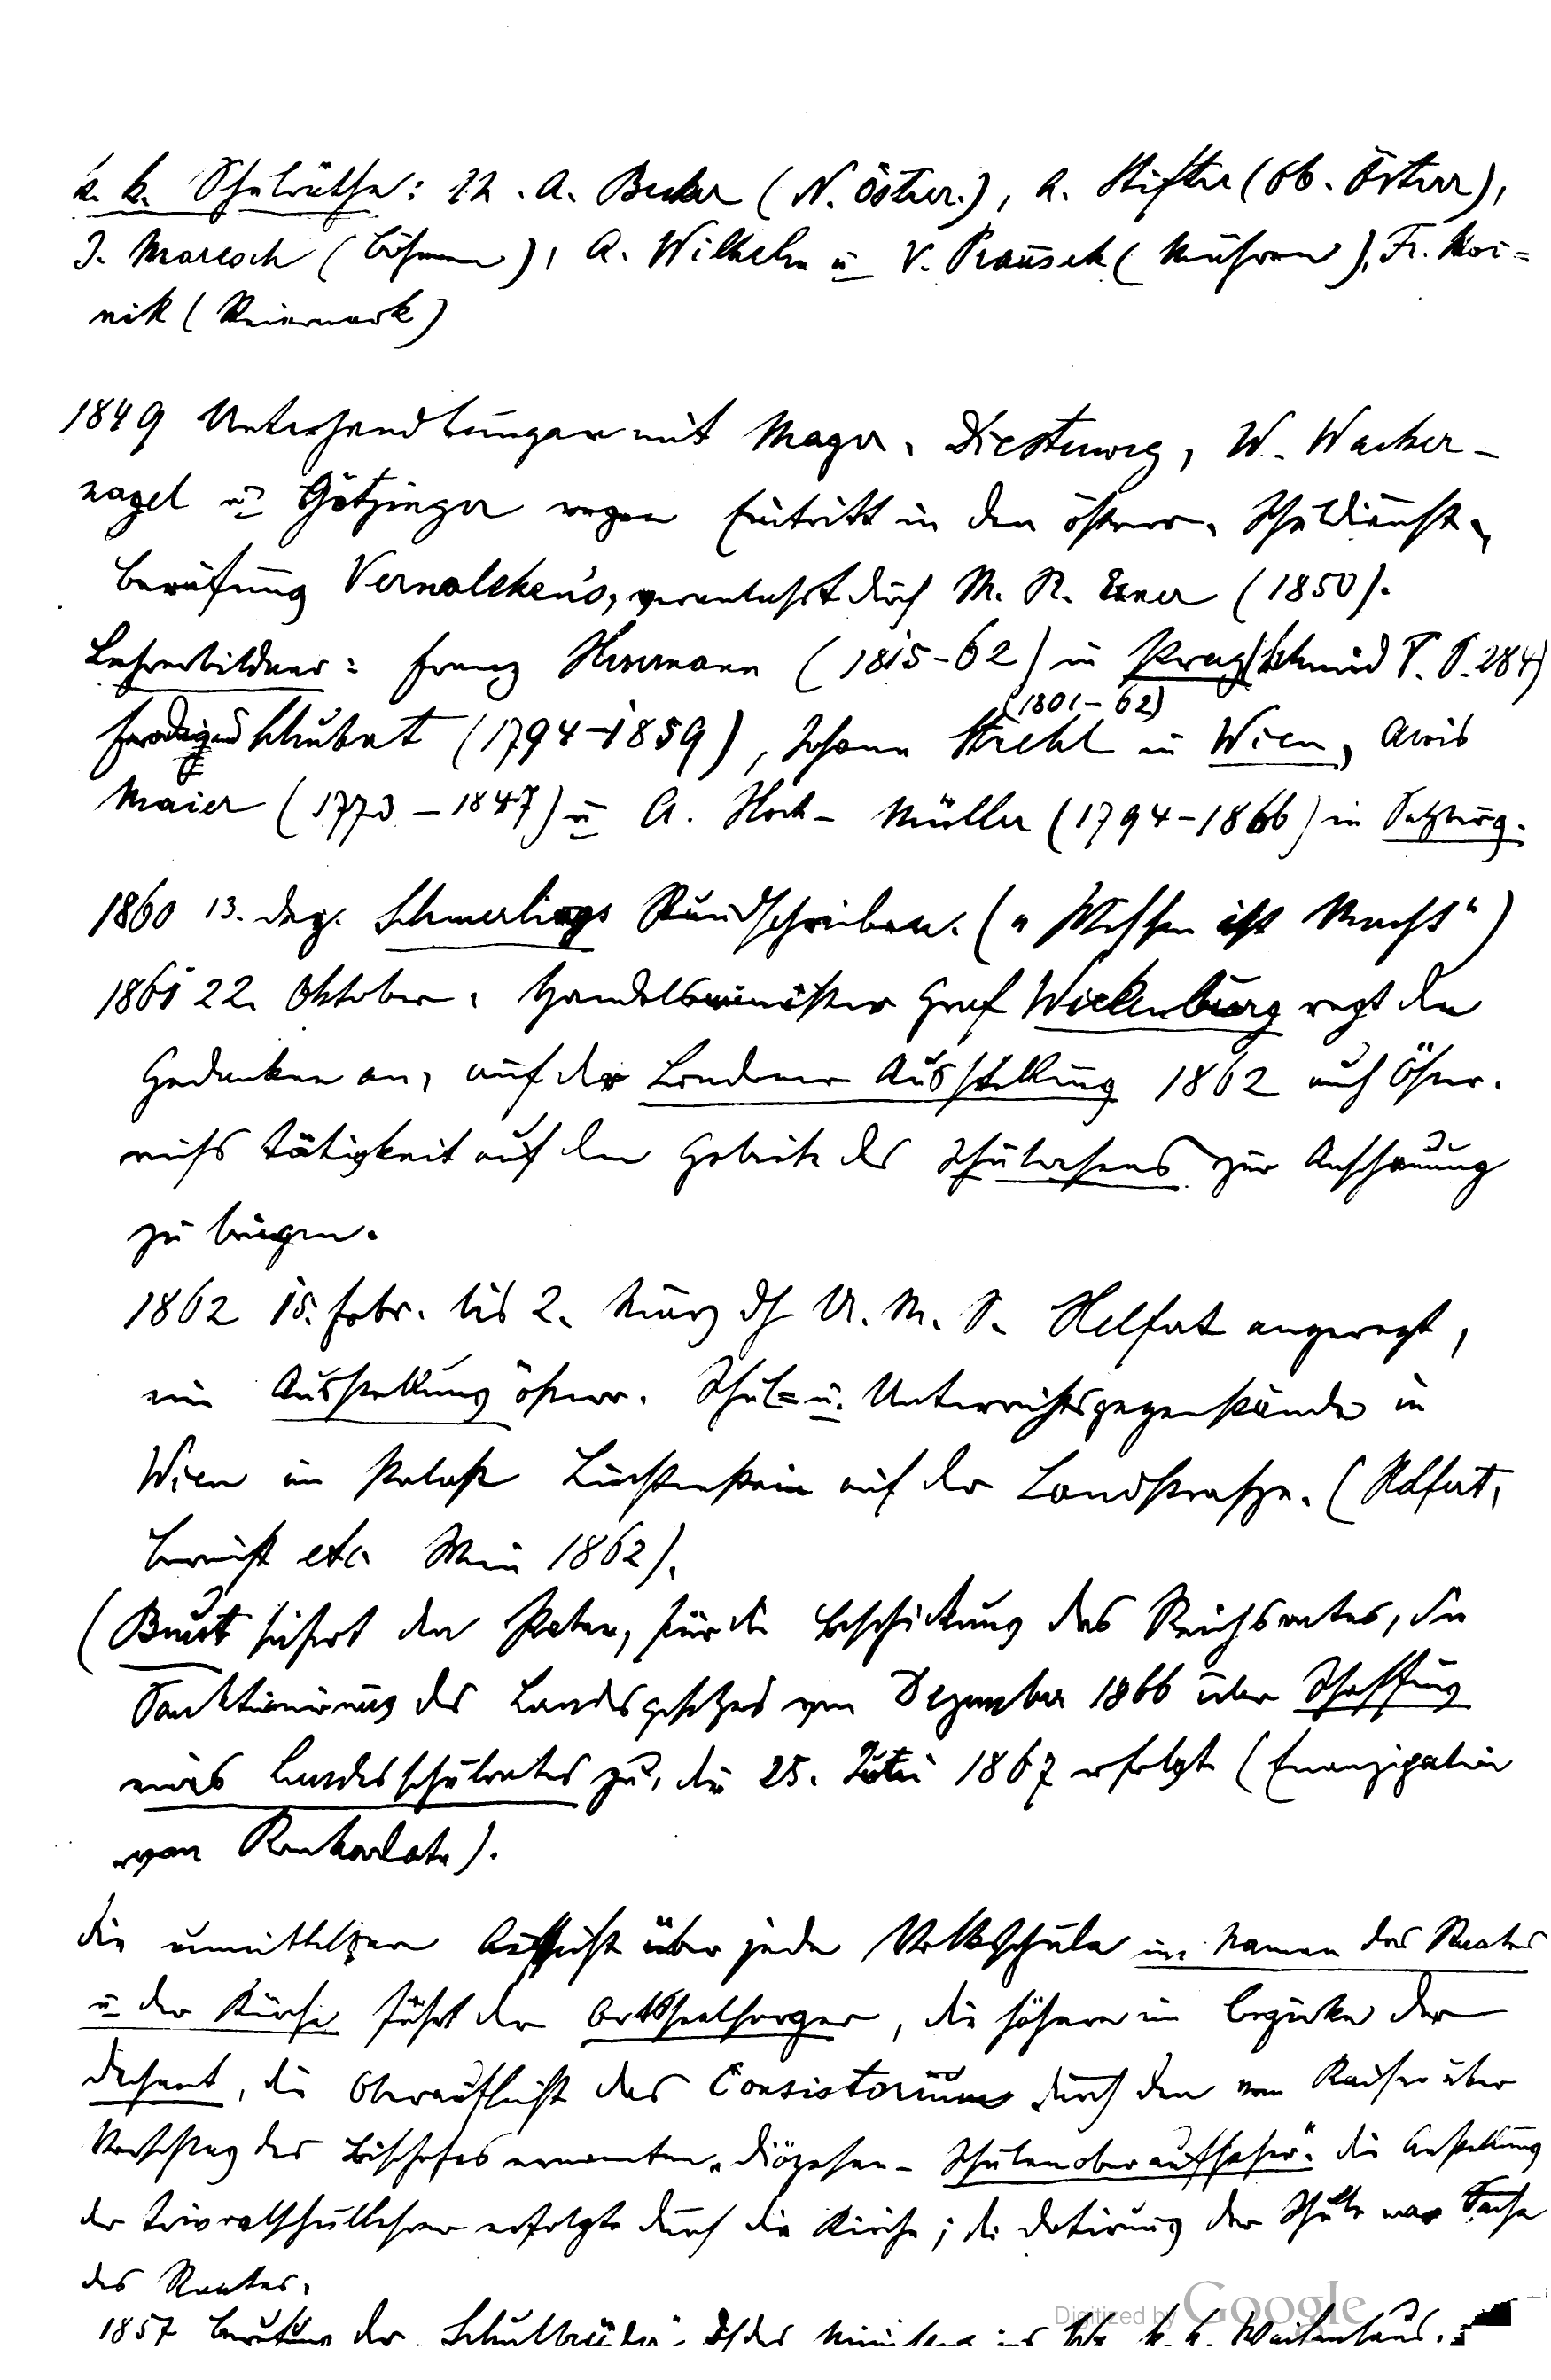 k. k. Schulräthe: M. A. Becker (N. Österr.), A. Stifter (Ob. Österr),
J. Maresch (Böhmen), A. Wilhelm u V. Prausek (Mähren), Fr. Moč=
nik (Steiermark)
1849 Unterhandlungen mit Mager, Diesterweg, W. Wacker-
nagel u Götzinger wegen Eintritt in den österr. Schuldienst,
Berufung Vernalekens, veranlasst durch M. R. Exner (1850).
Lehrerbildner: Franz Herrmann (1815-62) in Prag (Schmid S. 284)
Ferdinand Schubert (1794-1859), Johann Strehl (1801-62) in Wien, Alois
Maier (1773-1847) u A. Hoch-Müller (1794-1866) in Salzburg.
1860 13. Dez. Schmerlings Rundschreiben. („Wissen ist Macht")
1861 22. Oktober. Handelsminister Graf Wickenburg regt den
Gedanken an, auf der Londoner Ausstellung 1862 auch Öster.
reichs Tätigkeit auf dem Gebiete des Schulwesens zur Anschauung
zu bringen.
1862 15. Febr. bis 2. März d. U. M. S. Helfert angeregt,
eine Ausstellung österr. Schul= u. Unterrichtsgegenstände in
Wien im Palast Liechtenstein auf der Landstrasse. (Helfert,
Bericht etc. Wien 1862).
(Beust sichert den Polen, für die Beschickung des Reichsrates, die
Sanktionirung des Landesgesetzes vom Dezember 1866 über Schaffung
eines Landesschulrates zu, die 25. Juni 1867 erfolgt (Emanzipation
vom Konkordate).
Die unmittelbare Aufsicht über jede Volksschule im Namen des Staates
u der Kirche führt der Ortsseelsorger, die höhere im Bezirke der
Dechant, die Oberaufsicht das Consistorium durch den vom Kaiser über
Vorschlag des Bischofes ernannten „Diözesan-Schulenoberaufseher". Die Anstellung
der Trivialschullehrer erfolgte durch die Kirche; die Dotirung der Schule war Sache
des Staates.
1857 Berufung der „Schulbrüder" ins k. k. Waisenhaus.
Digitized by Google